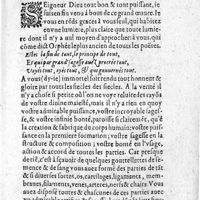 SEigneur Dieu tout bon & tout puissant, ie
suis en fin venu à bout de ce grand œuure. Ie
vous en rêds graces à vous seul, qui habitez
en vne lumiere, plus claire que toute lumie-
re dont il n'y a nul moyen d'approcher: à vous, qui
côme dict Orphée le plus ancien de tous les poëtes.
Estes la fin de tout, le principe de tout,
Et qui par grand' sagesse auez procreé tout,
Voyés tout, oyés tout, & qui gouuernés tout.
A vous (dy-ie) immortel soit rendu tout honneur &
gloire par tous les siecles des siecles. A la verité il n'y
a chose ne si petite ne si grande qui nous face reluyre
vostre diuine maiesté, mais il n'y a rien qui
vostre admirable puissance, vostre incroyable sages-
se, & vostre infinie bonté,
la creation & fabrique du corps humain: vostre puis-
sance en la premiere formation; vostre sagesse en la
structure & composition; vostre bonté en l'vsage,
action & accord de toutes les parties. Car presque
de
& diuerses sortes, os, cartilages, ligamens, mem-
branes, filamens, venes, arteres, nerfs & chairs. Vous
auez disposé toutes & chacunes de ces parties auec